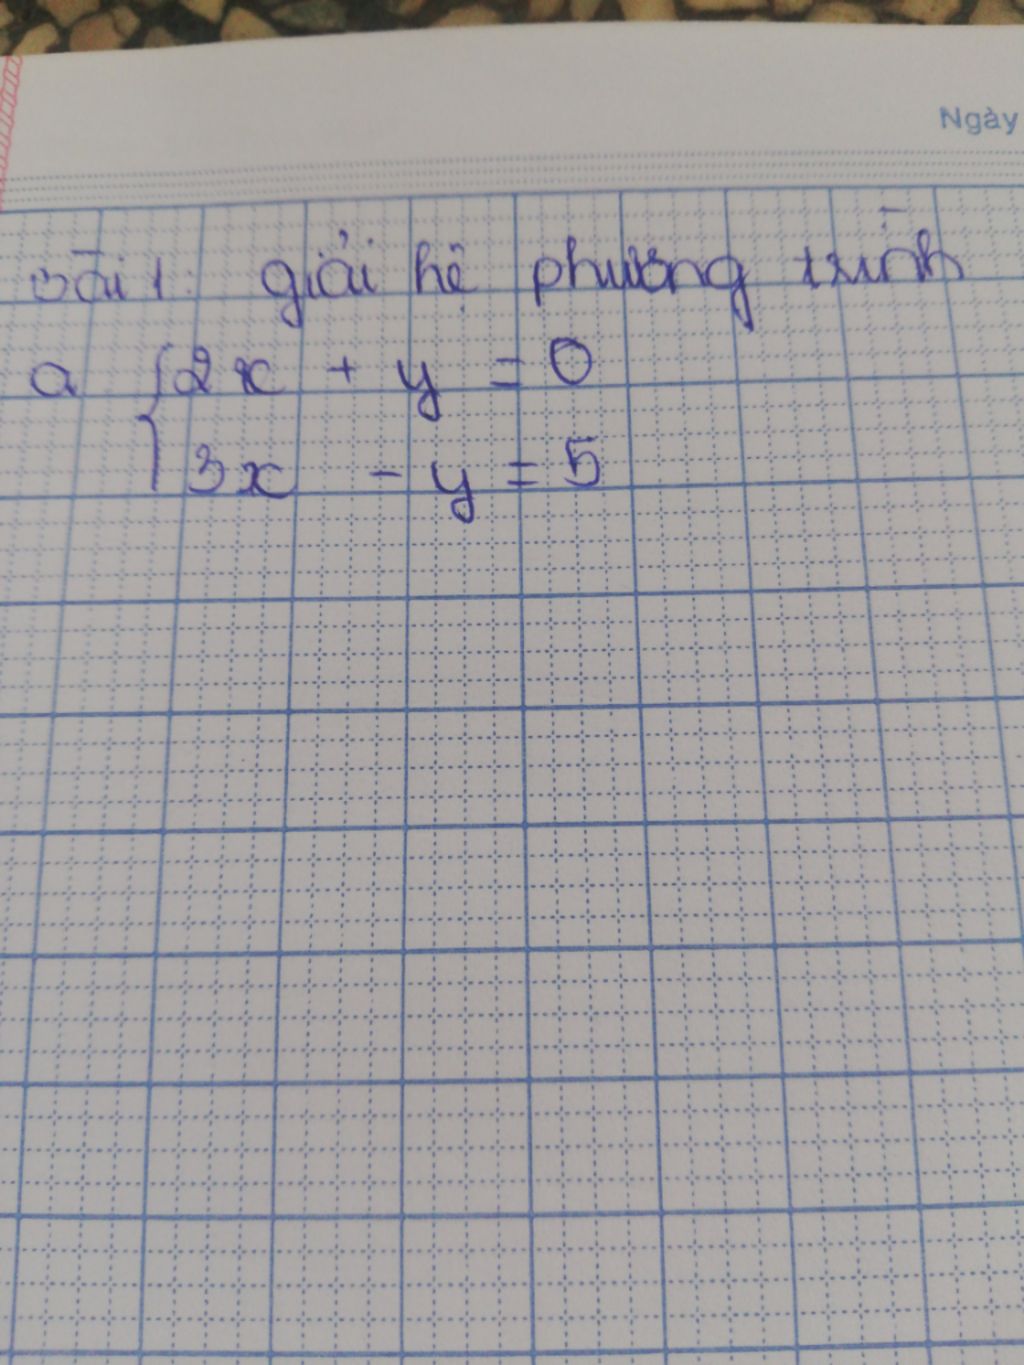 Ngày
bài 1: giải hệ phương trình
a { 2x + y = 0
3x - y = 5